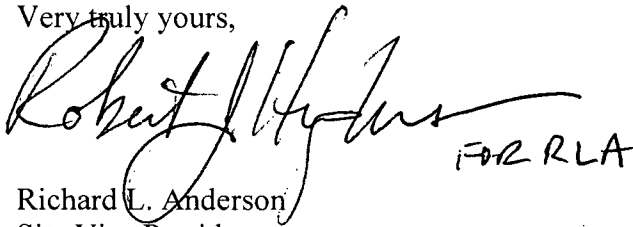 Very truly yours,
Robert J
FOR RLA
Richard L. Anderson